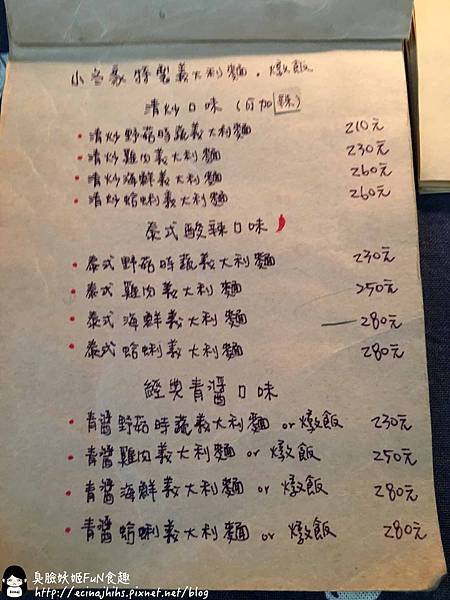 小室家特製義大利麵．燉飯
清炒口味（可加辣）
清炒野菇時蔬義大利麵 210元
清炒雞肉義大利麵 230元
清炒海鮮義大利麵 260元
清炒蛤蜊義大利麵 260元
泰式酸辣口味
泰式野菇時蔬義大利麵 230元
泰式雞肉義大利麵 250元
泰式海鮮義大利麵 280元
泰式蛤蜊義大利麵 280元
經典青醬口味
青醬野菇時蔬義大利麵 or 燉飯 230元
青醬雞肉義大利麵 or 燉飯 250元
青醬海鮮義大利麵 or 燉飯 280元
青醬蛤蜊義大利麵 or 燉飯 280元
臭臉妖姬FuN食趣
http://ecinajhihs.pixnet.net/blog